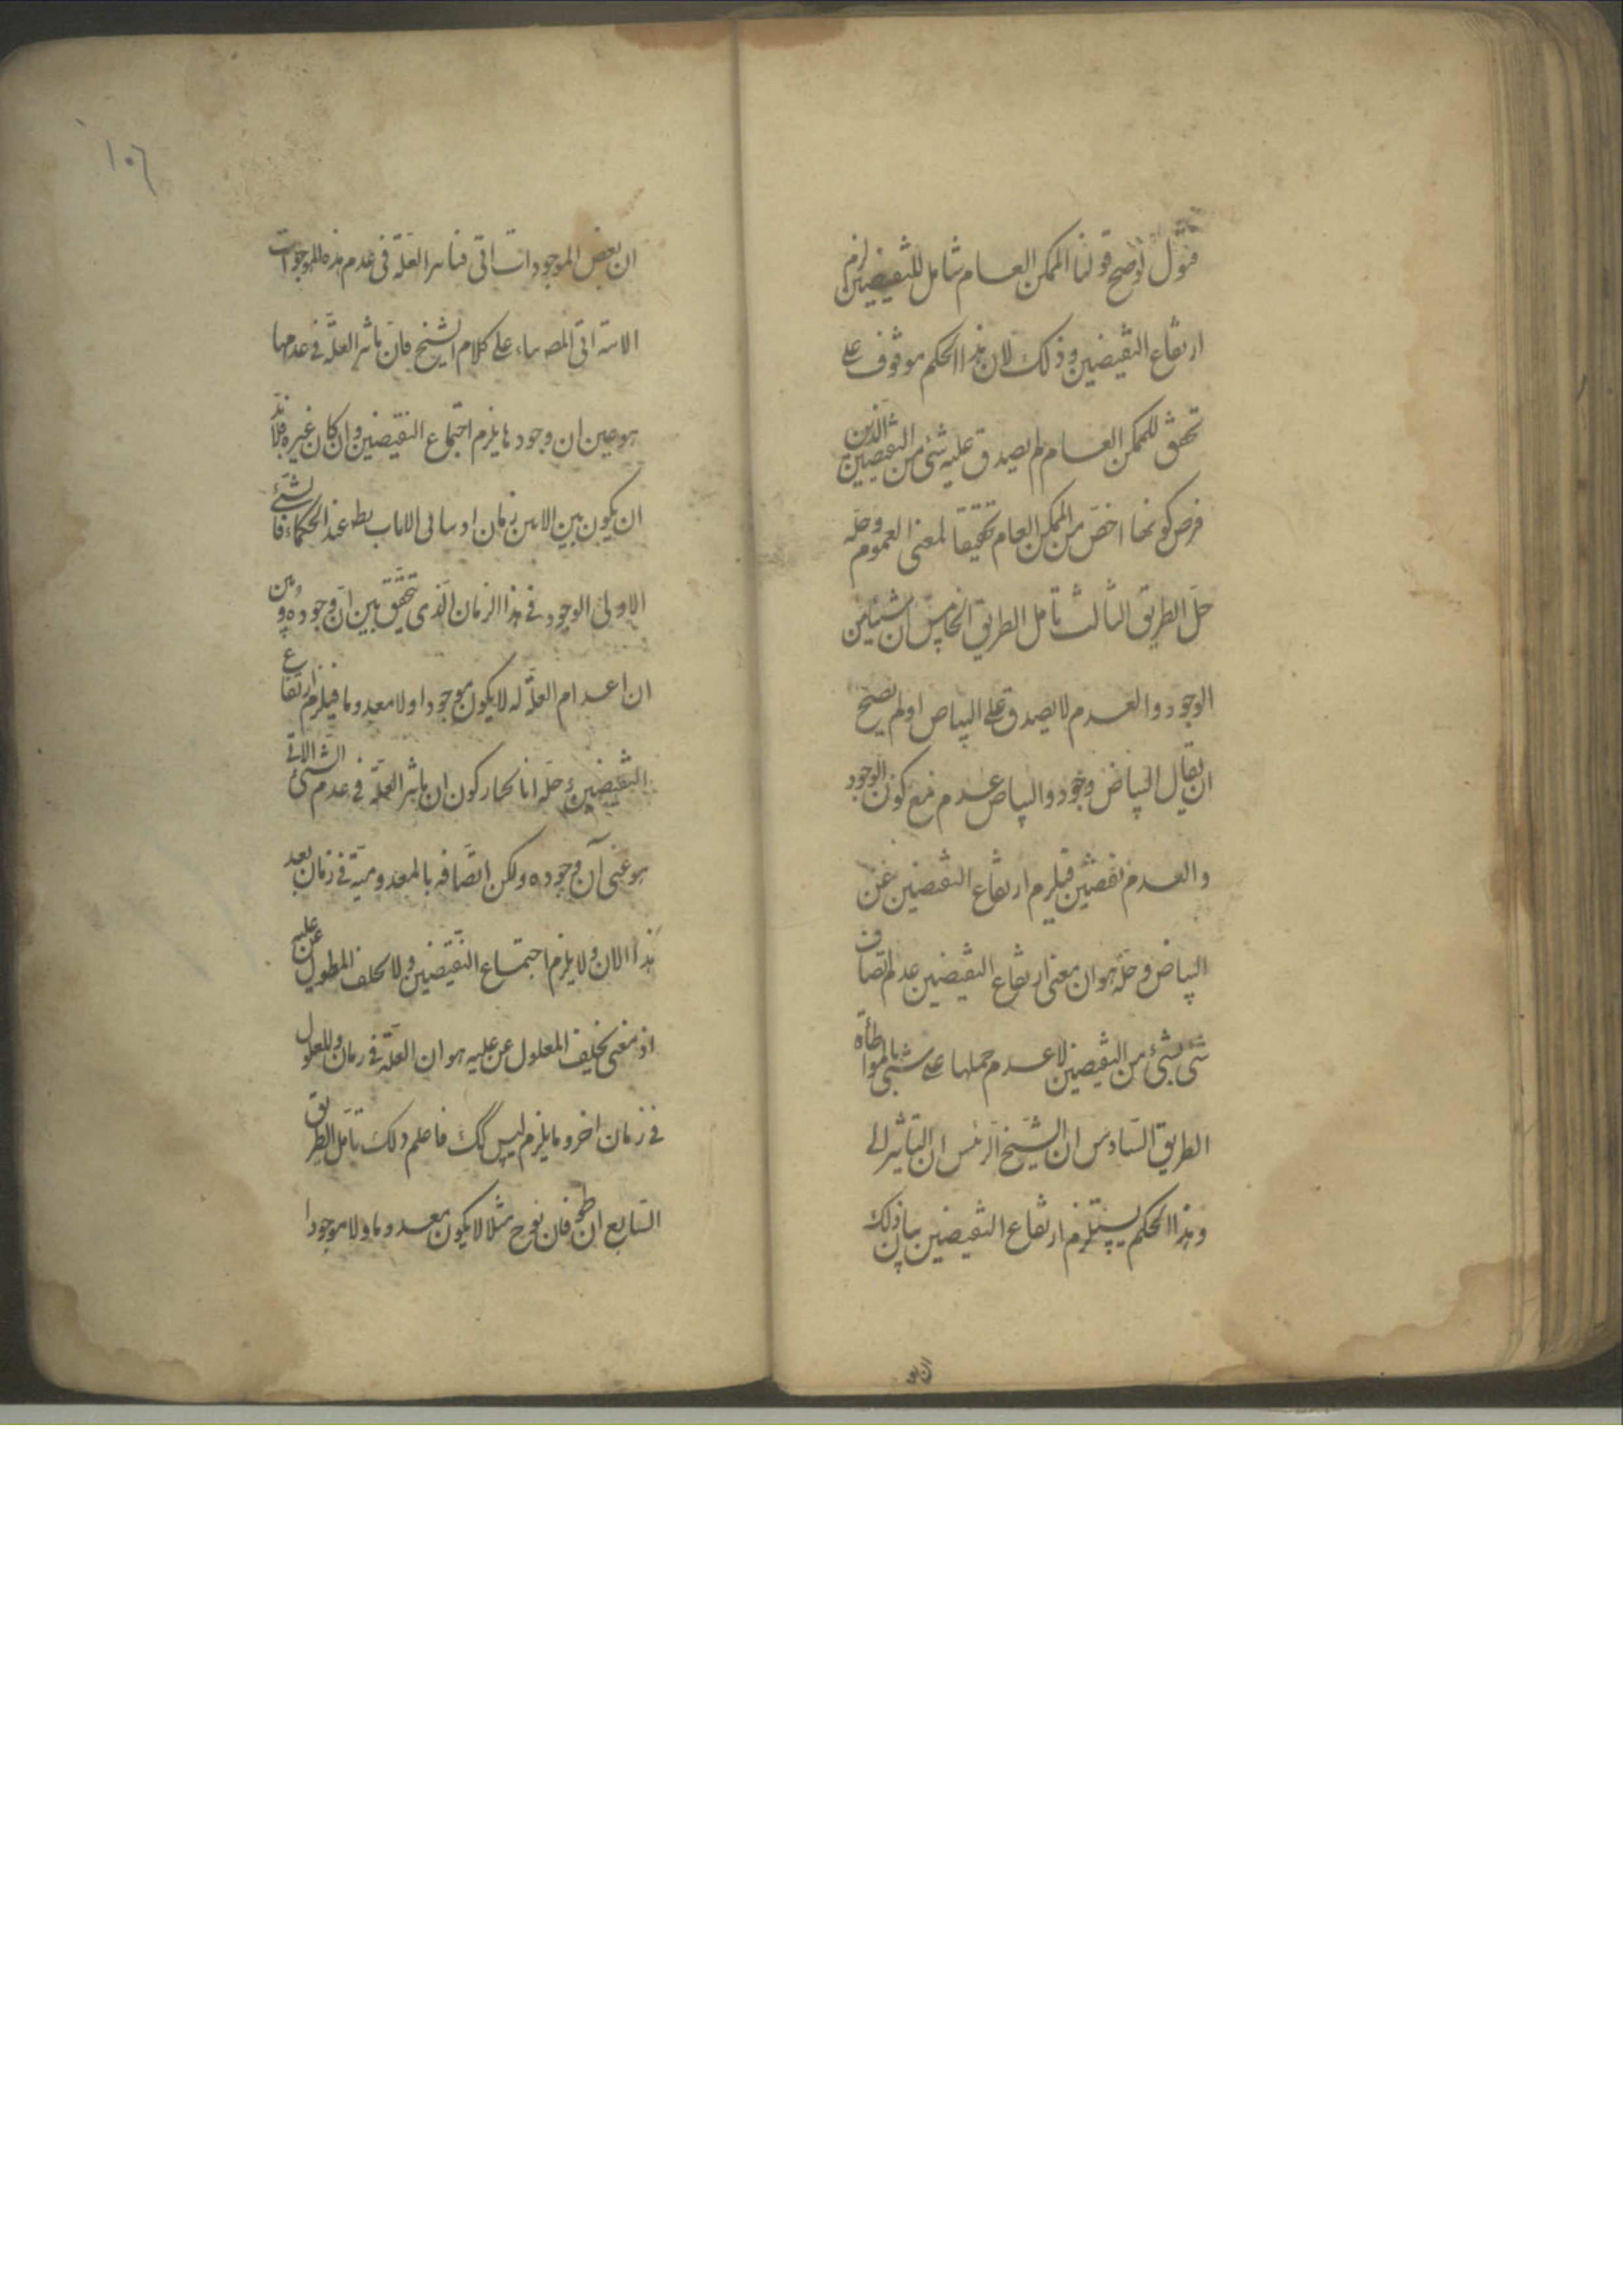 فنقول لو صح قولنا الممكن العام شامل للنقيضين لزم
ارتفاع النقيضين وذلك لان هذا الحكم موقوف على
تحقق للممكن العام لم يصدق عليه شئ من النقيضين الذين
فرض كونهما اخص من الممكن العام تحقيقا لمعنى العموم وحله
حل الطريق الثالث تأمل الطريق الخامس ان شيئا من
الوجود والعدم لا يصدق على البياض اولم يصح
ان يقال البياض وجود والبياض عدم مع كون الوجود
والعدم نقيضين فيلزم ارتفاع النقيضين عن
البياض وحله هو ان معنى ارتفاع النقيضين عدم اتصاف
شئ بشئ من النقيضين لا عدم حملها على شئ بالمواطأة
الطريق السادس ان الشيخ الرئيس ان التأثير
وهذا الحكم يستلزم ارتفاع النقيضين بيان ذلك
ان بعض
١٠٦
ان بعض الموجودات اتى فتأثير العلة فى عدم هذه الموجودات
على كلام الشيخ فان تأثير العلة فى عدمها
هو عين ان وجودها يلزم اجتماع النقيضين وان كان غيره فلابد
ان يكون بين الانين زمان عند الحكماء فالشئ
الاولى الوجود فى هذا الزمان الذى تحقق بين ان وجوده وبين
ان اعدام العلة له لا يكون موجودا ولا معدوما فيلزم ارتفاع
النقيضين وحله انا نختار كون ان تأثير العلة فى عدم الشئ الاتى
هو عين آن وجوده ولكن اتصافه بالمعدومية فى زمان بعد
هذا الان ولا يلزم اجتماع النقيضين ولا تخلف المعلول عن علته
اذ معنى تخليف المعلول عن علته هو ان العلة فى زمان والمعلول
فى زمان اخر وما يلزم ليس كك فاعلم ذلك تأمل الطريق
السابع ان طوفان نوح مثلا لا يكون معدوما ولا موجودا